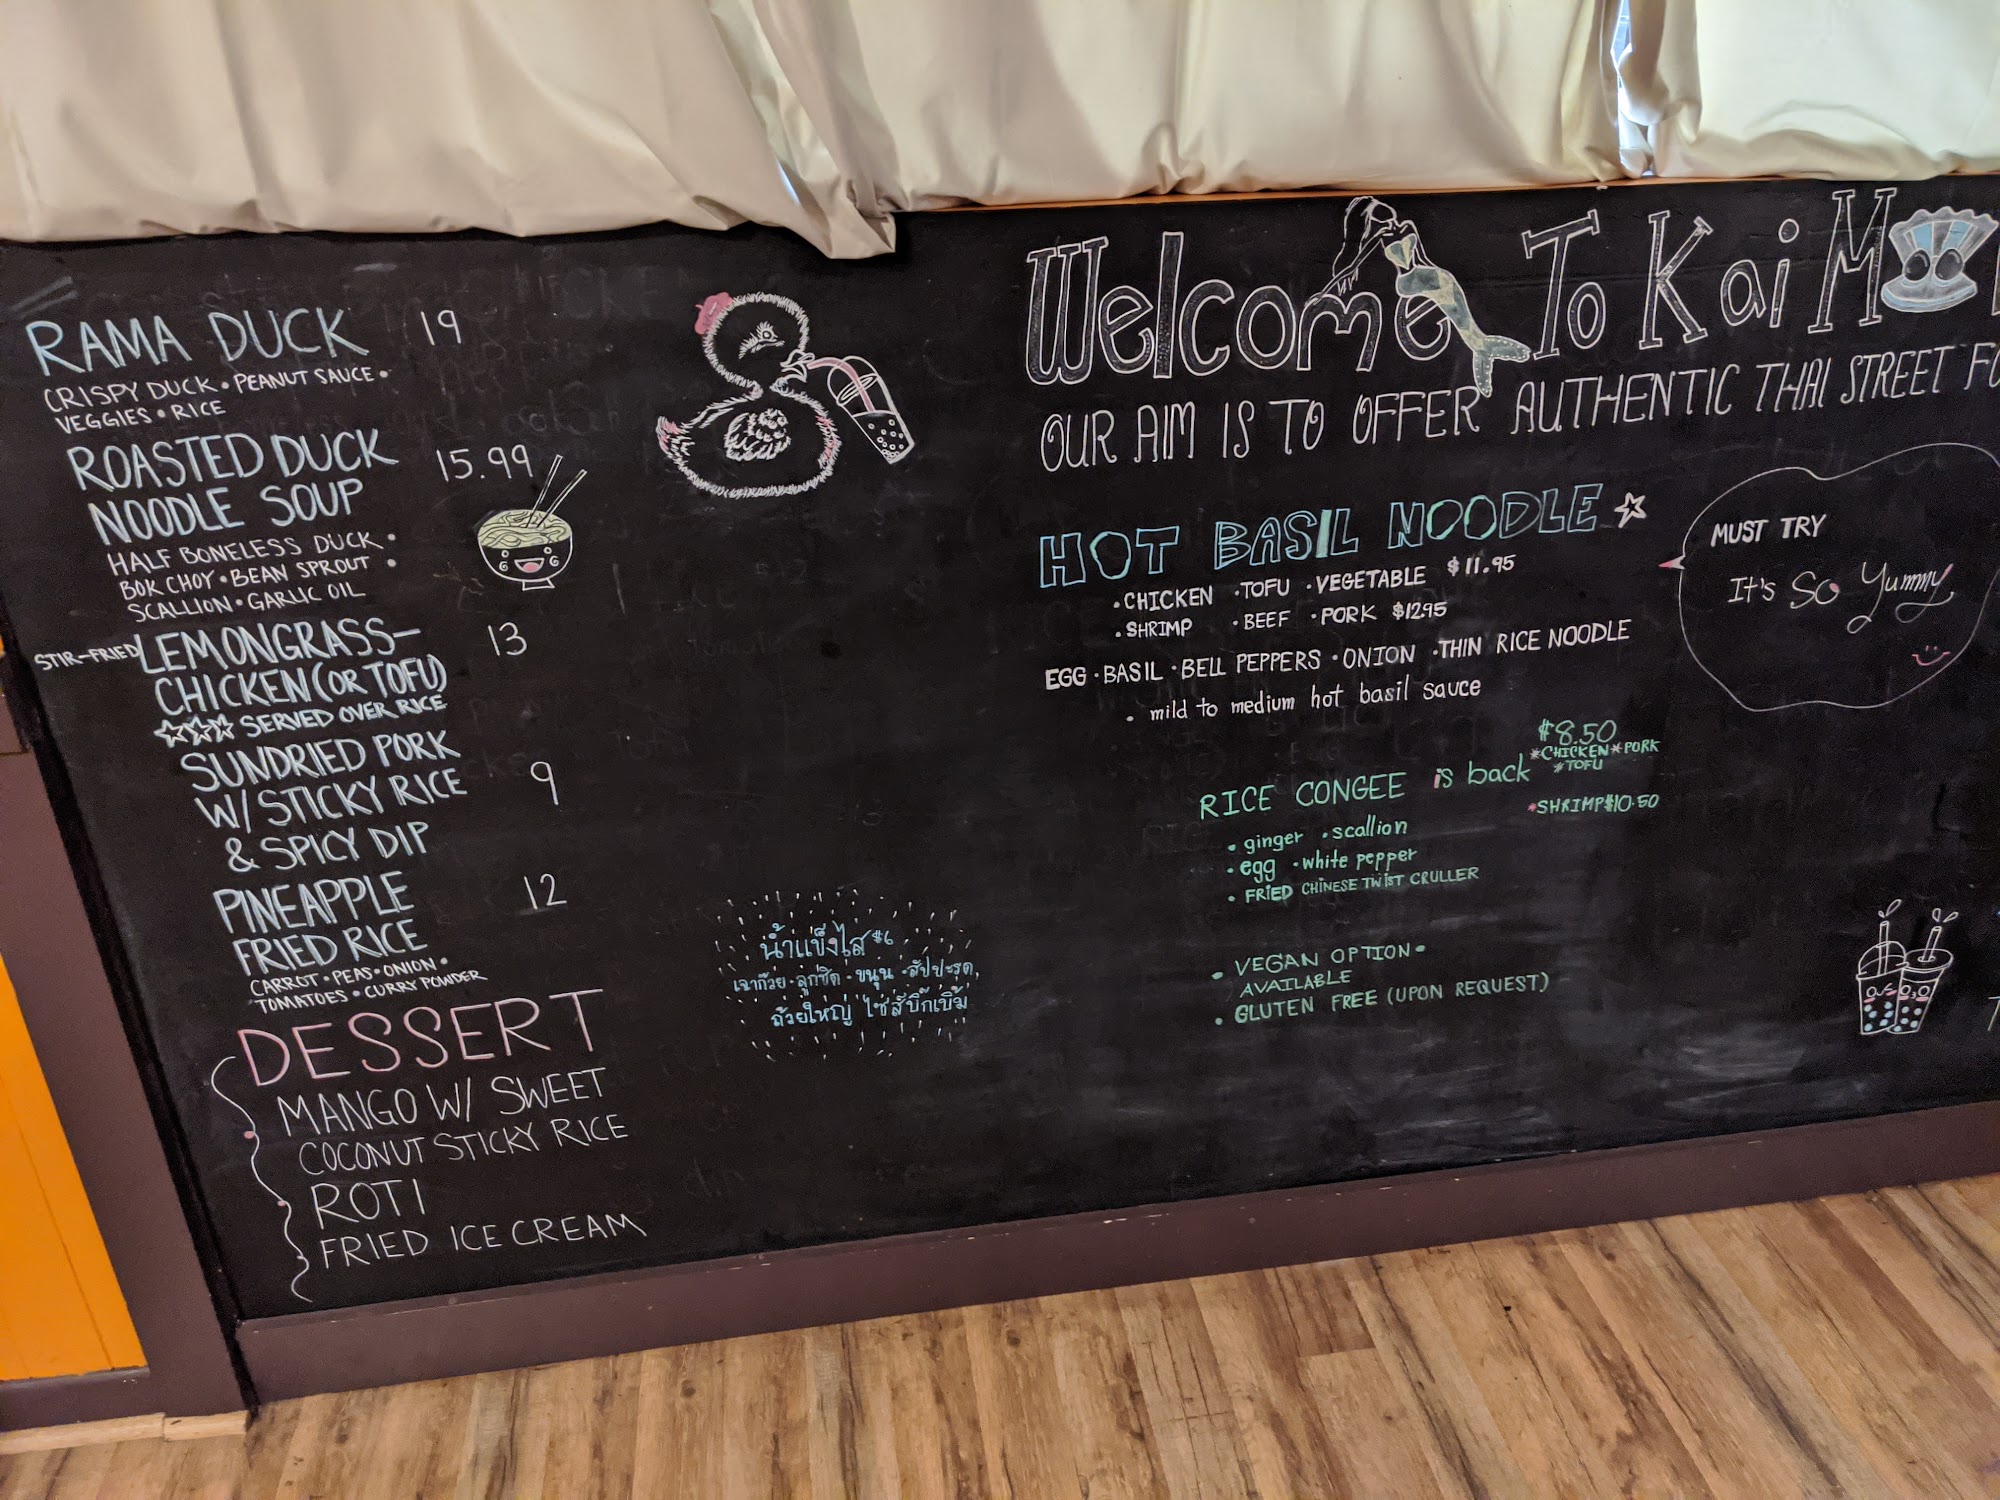 RAMA DUCK 19
CRISPY DUCK • PEANUT SAUCE •
VEGGIES • RICE
ROASTED DUCK 15.99
NOODLE SOUP
HALF BONELESS DUCK •
BOK CHOY • BEAN SPROUT •
SCALLION • GARLIC OIL
STIR-FRIED LEMONGRASS- 13
CHICKEN (OR TOFU)
☆☆☆ SERVED OVER RICE
SUNDRIED PORK
W/ STICKY RICE 9
& SPICY DIP
PINEAPPLE 12
FRIED RICE
CARROT • PEAS • ONION •
TOMATOES • CURRY POWDER
DESSERT
MANGO W/ SWEET
COCONUT STICKY RICE
ROTI
FRIED ICE CREAM
น้ำแข็งไส $6
เฉาก๊วย • ลูกชิด • ขนุน • สัปปะรด
ถ้วยใหญ่ ไซส์บิ๊กเบิ้ม
Welcome To Kai
OUR AIM IS TO OFFER AUTHENTIC THAI STREET
HOT BASIL NOODLE ☆
• CHICKEN • TOFU • VEGETABLE $11.95
• SHRIMP • BEEF • PORK $12.95
EGG • BASIL • BELL PEPPERS • ONION • THIN RICE NOODLE
• mild to medium hot basil sauce
MUST TRY
It's So Yummy
$8.50
*CHICKEN *PORK
*TOFU
RICE CONGEE is back
*SHRIMP $10.50
• ginger • scallion
• egg • white pepper
• FRIED CHINESE TWIST CRULLER
• VEGAN OPTION •
AVAILABLE
• GLUTEN FREE (UPON REQUEST)